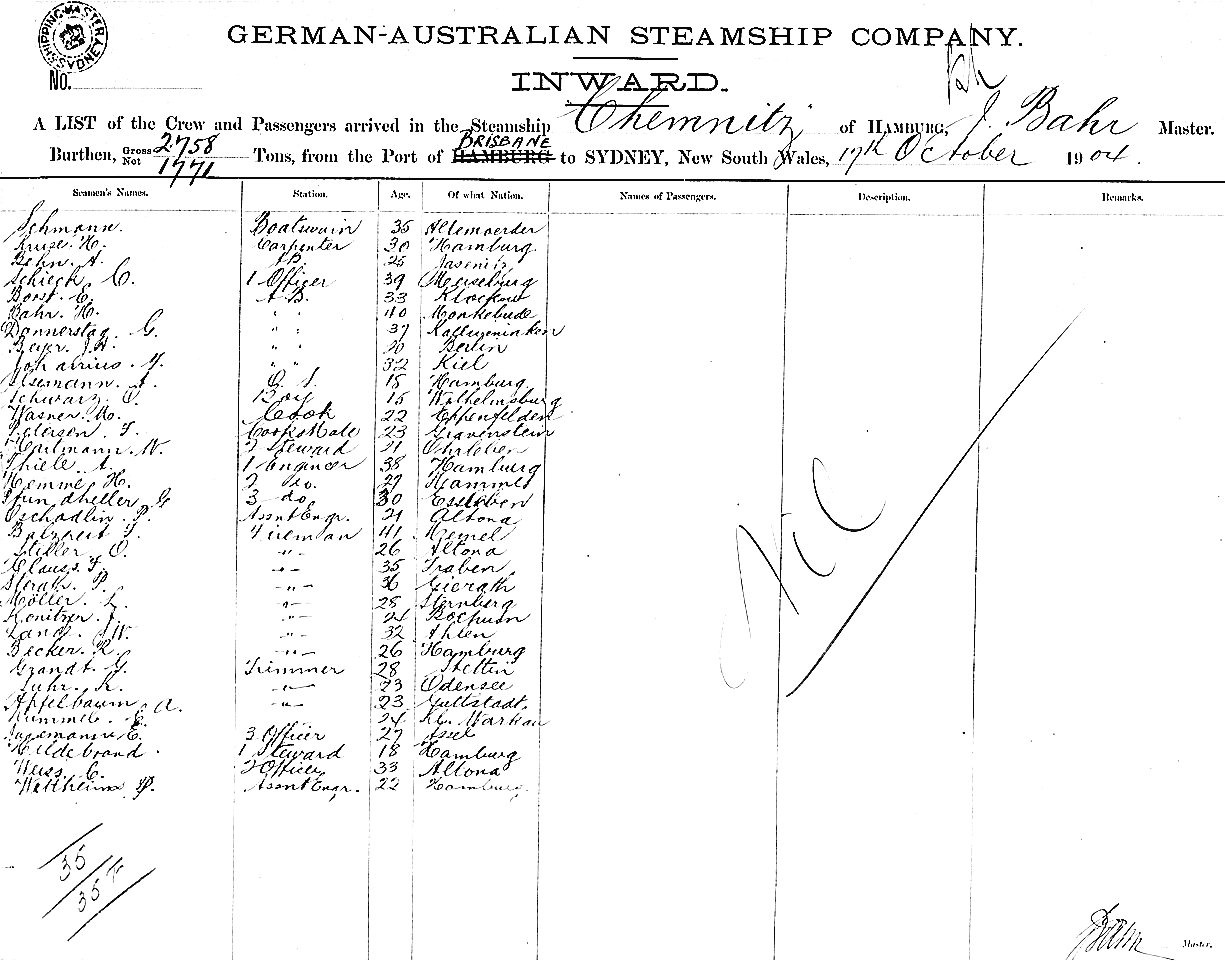 SHIPPING MASTER SYDNEY
GERMAN-AUSTRALIAN STEAMSHIP COMPANY.
No.
INWARD.
A LIST of the Crew and Passengers arrived in the Steamship Chemnitz of HAMBURG, J. Bahr Master.
Burthen, Gross 2758 Net 1771 Tons, from the Port of BRISBANE HAMBURG to SYDNEY, New South Wales, 17th October 1904.
Seamen's Names. Station. Age. Of what Nation. Names of Passengers. Description. Remarks.
Sehmann. Boatswain 35
Kruse. H. Carpenter 30 Hamburg
Behn. A. 25
Schieck C. 1 Officer 39
Borst. C. A.B. 33
Bahr. H. " " 40 Monkebude
Donnerstag. G. " " 37
Beyer. J.H. " " 20 Berlin
" " 32 Kiel
O. S. 18 Hamburg
Schwarz. O. Boy 15 Wilhelmsburg
Wasner. M. Cook 22 Eppenfelden
Petersen. T. Cooks Mate 23 Gravenstein
W. 2 Steward 21
Thiele. A. 1 Engineer 38 Hamburg
Hemme. H. 2 do. 27
Pfundheller G 3 do 30
Oschadlin. P. Assnt Engr. 21 Altona
Fireman 41 Memel
Stiller. O. " 26 Altona
Klauss. F. " 35 Traben
Strath. P. " 36 Gierath
Möller. L. " 28 Sternberg
Konitzer. J. " 24 Bochum
W. " 32 Ahlen
Becker. R. " 26 Hamburg
Grandt. G. Trimmer 28 Stettin
Luhr. K. " 23 Odensee
Apfelbaum. A. " 23 Guttstadt.
Kummel. E. 24
E. 3 Officer 27 Assel
Hildebrand. 1 Steward 18 Hamburg
Weiss. C. 2 Officer 33 Altona
P. Assnt Engr. 22 Hamburg.
Nil
35
35
Master.